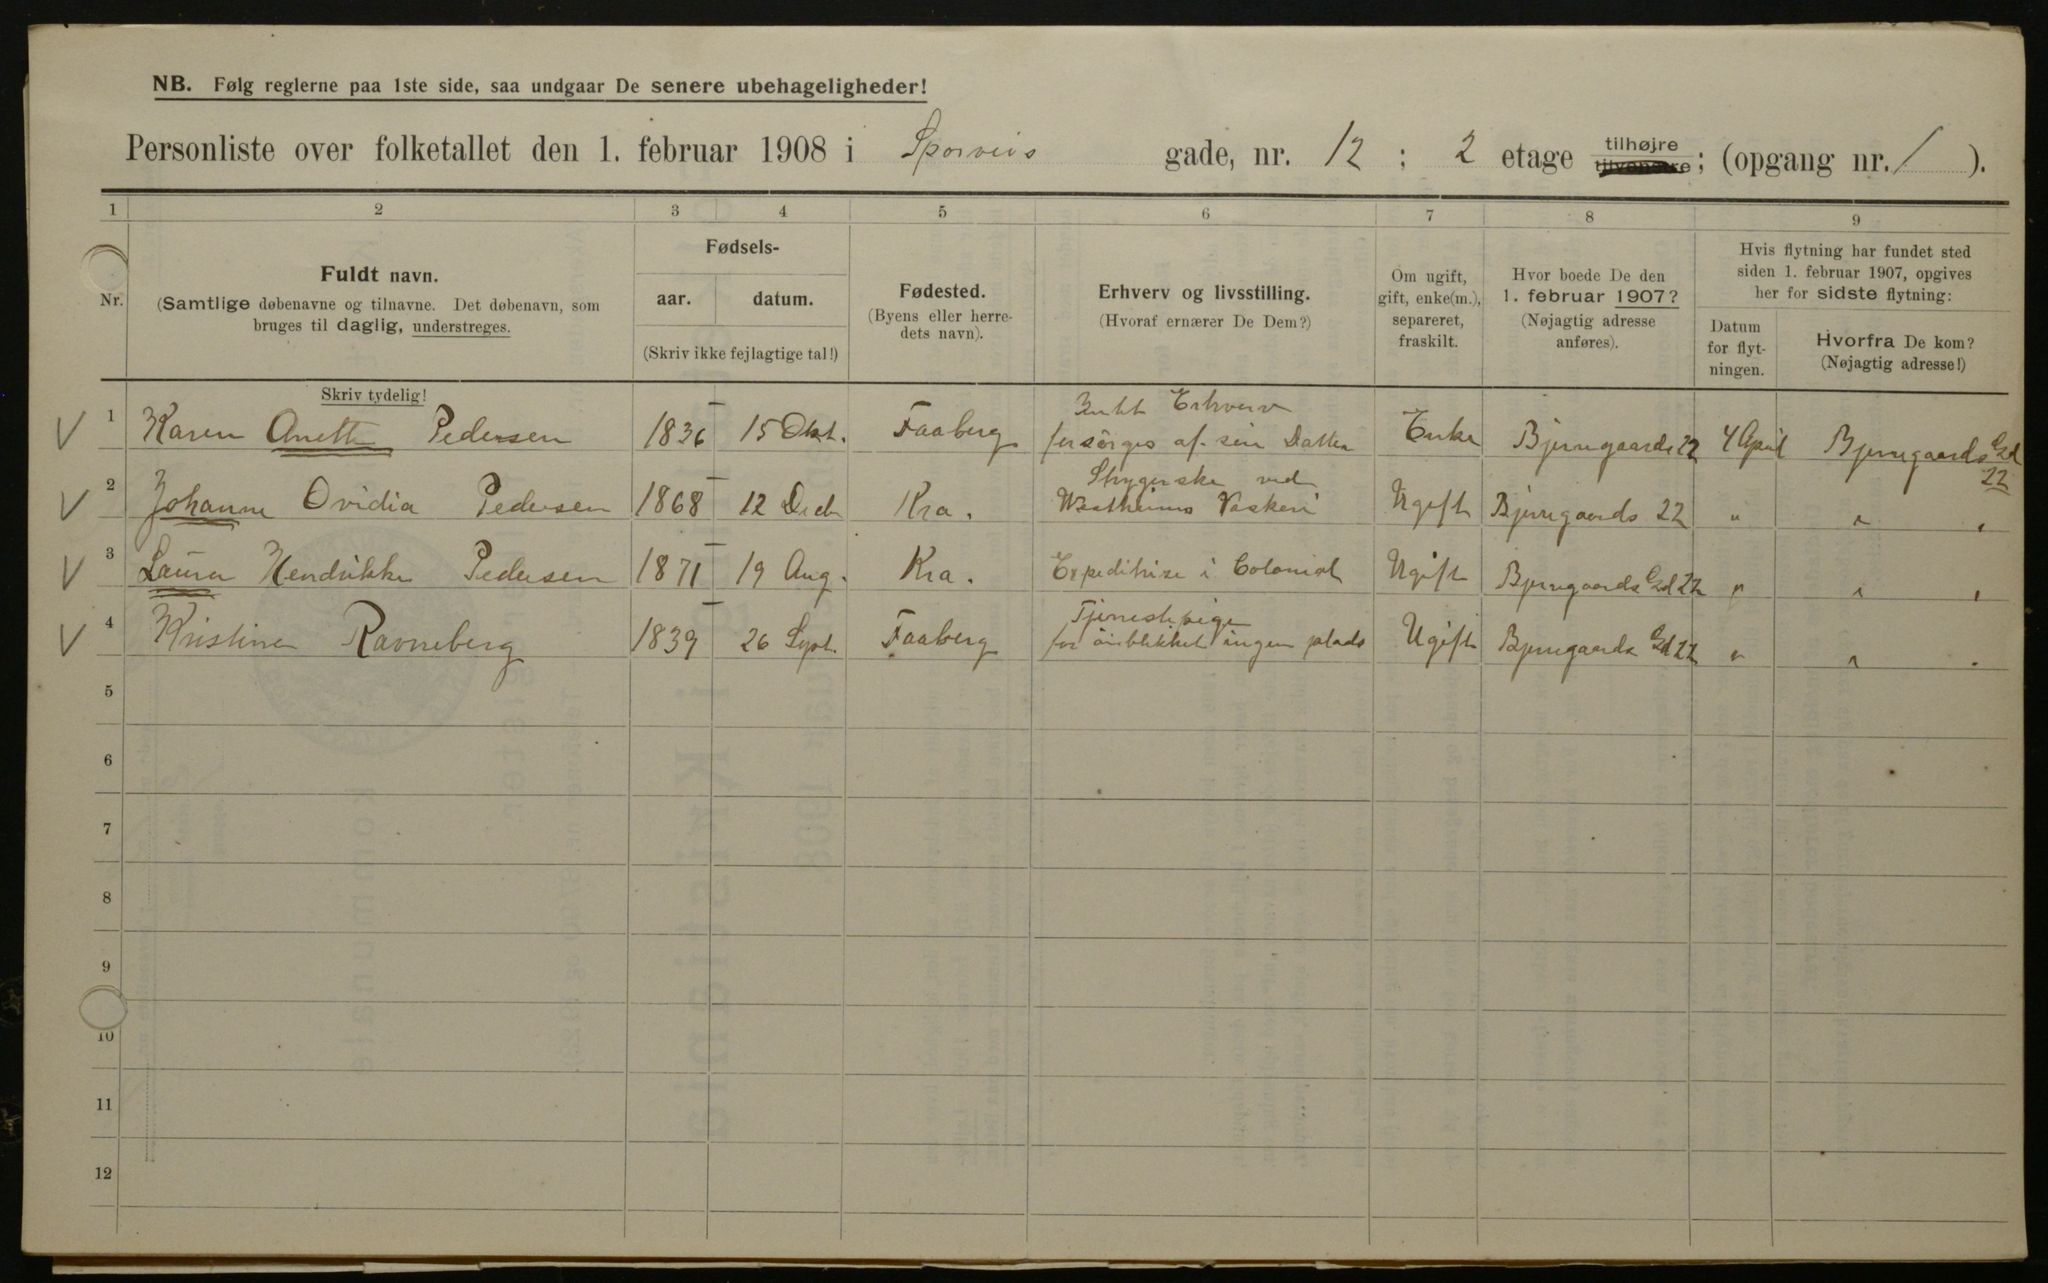 NB. Følg reglerne paa 1ste side, saa undgaar De senere ubehageligheder!
Personliste over folketallet den 1. februar 1908 i Sporveis gade, nr. 12 ; 2 etage tilhøjre tilvenstre ; (opgang nr. 1 ).
1 2 3 4 5 6 7 8 9
Nr.
Fuldt navn.
(Samtlige døbenavne og tilnavne. Det døbenavn, som
bruges til daglig, understreges.
Fødsels-
aar. datum.
(Skriv ikke fejlagtige tal!)
Fødested.
(Byens eller herre-
dets navn).
Erhverv og livsstilling.
(Hvoraf ernærer De Dem?)
Om ugift,
gift, enke(m.),
separeret,
fraskilt.
Hvor boede De den
1. februar 1907?
(Nøjagtig adresse
anføres).
Hvis flytning har fundet sted
siden 1. februar 1907, opgives
her for sidste flytning:
Datum
for flyt-
ningen.
Hvorfra De kom?
(Nøjagtig adresse!)
Skriv tydelig!
V 1 Karen Anette Pedersen 1836 15 Okt. Faaberg Intet Erhverv
forsörges af sin Datter Enke Bjerregaards 22 4 April Bjerregaards Gd
22
V 2 Johanne Ovidia Pedersen 1868 12 Decb Kra. Strygerske ved
Westheims Vaskeri Ugift Bjerregaards 22 " " "
V 3 Laura Hendrikke Pedersen 1871 19 Aug. Kra. Expeditrise i Colonial Ugift Bjerregaards Gd 22 " " "
V 4 Kristine Ravneberg 1839 26 Sept. Faaberg Tjenestepige
for öieblikket ingen plads Ugift Bjerregaards Gd 22 " " "
5
6
7
8
9
10
11
12